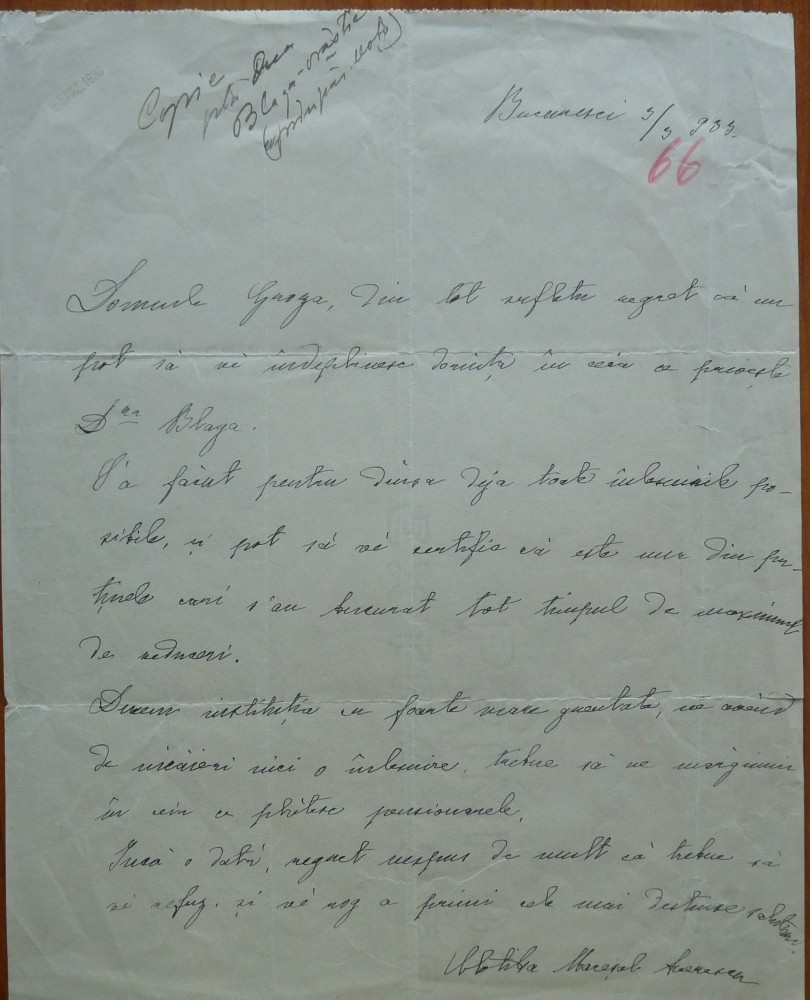 Copie
Blaga-Orăștie
Bucuresci 3/3 933.
66
Domnule Goga, din tot sufletu regret că nu
pot să vĕ îndeplinesc dorința în ceia ce privește
D^na Blaga.
S'a făcut pentru dînsa deja toate înlesnirile po-
sibile, și pot să vĕ certific că este una din pu-
ținele cari s'au bucurat tot timpul de maximum
de reduceri.
Ducem instituția cu foarte mare greutate, ne având
de nicăieri nici o înlesnire, trebue să ne mărginim
în ceia ce plătesc pensionarele.
Încă o dată, regret nespus de mult că trebue să
vĕ refuz, și vĕ rog a primi cele mai distinse salutări.
Clotilda Mareșal Averescu